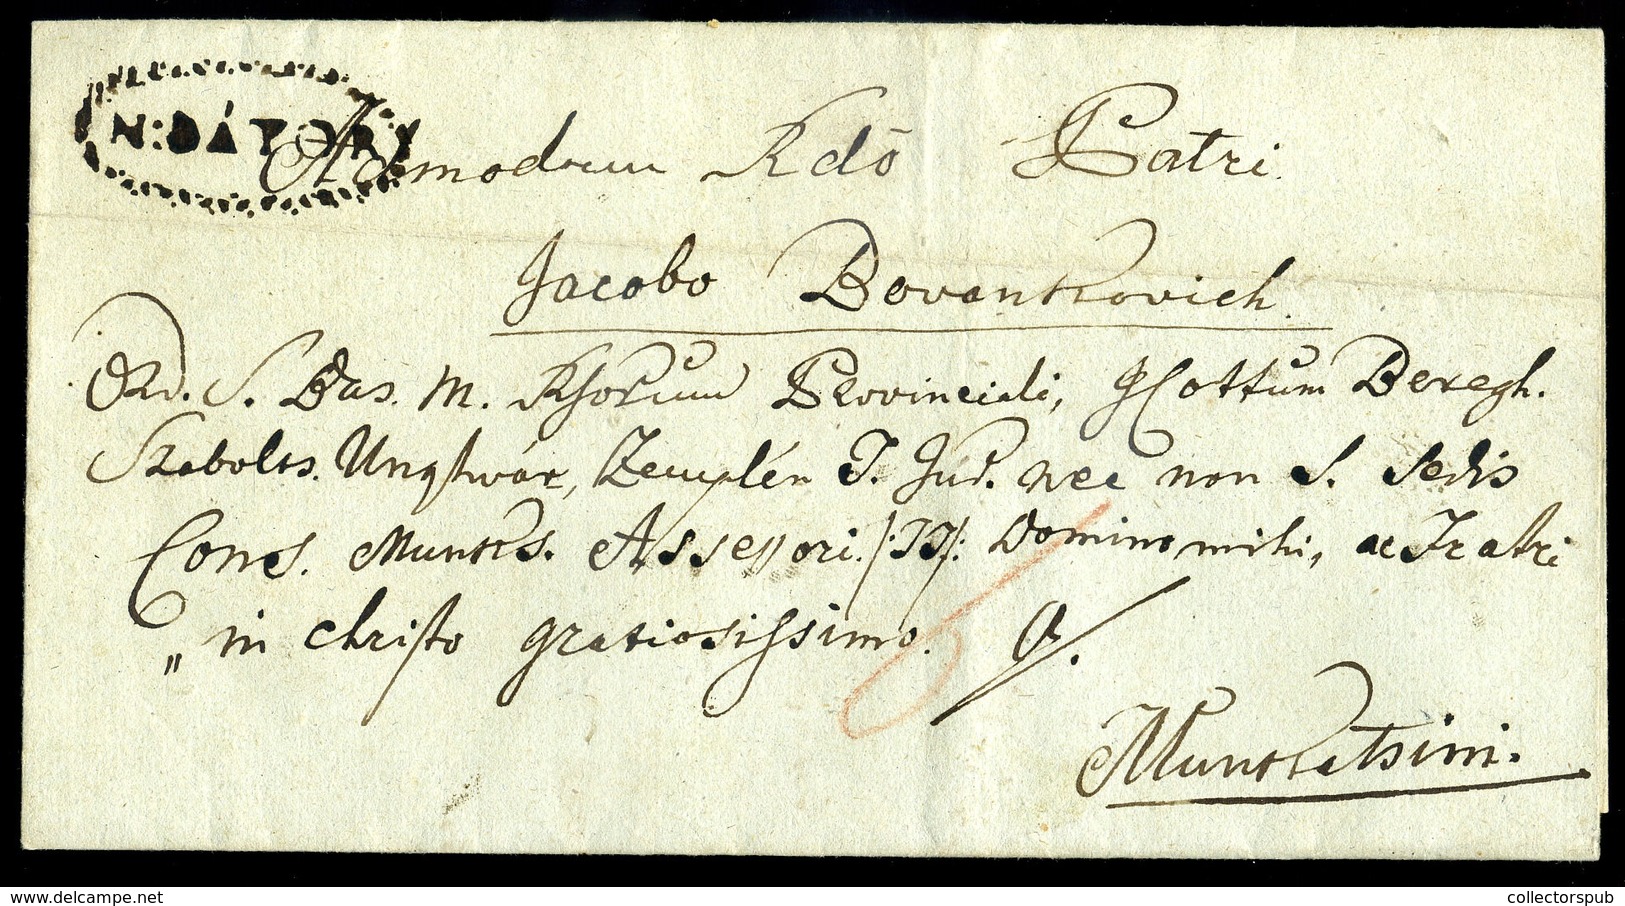 N: BÁTORY
Admodum Rdō Patri
Jacobo Bovankovich.
Ord. S. Bas. M. Rhorum Provinciali, Cottum Beregh.
Szabolts. Unghvár, Zemplén T. Jud. nec non S. Sedis
Cons. Munkds. Assessori /:TT/: Domino mihi, ac Fratri
„ in Christo gratiosissimo.
Munkatsini.
collectorspub